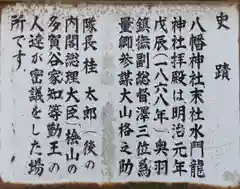 史蹟
八幡神社末社水門龍
神社拝殿は明治元年
戊辰（一八六八年）奥羽
鎮撫副総督澤三位爲
量卿参謀大山格之助
隊長桂太郎（後の
内閣総理大臣）桧山の
多賀谷家知等勤王の
人達が密議をした場
所です。